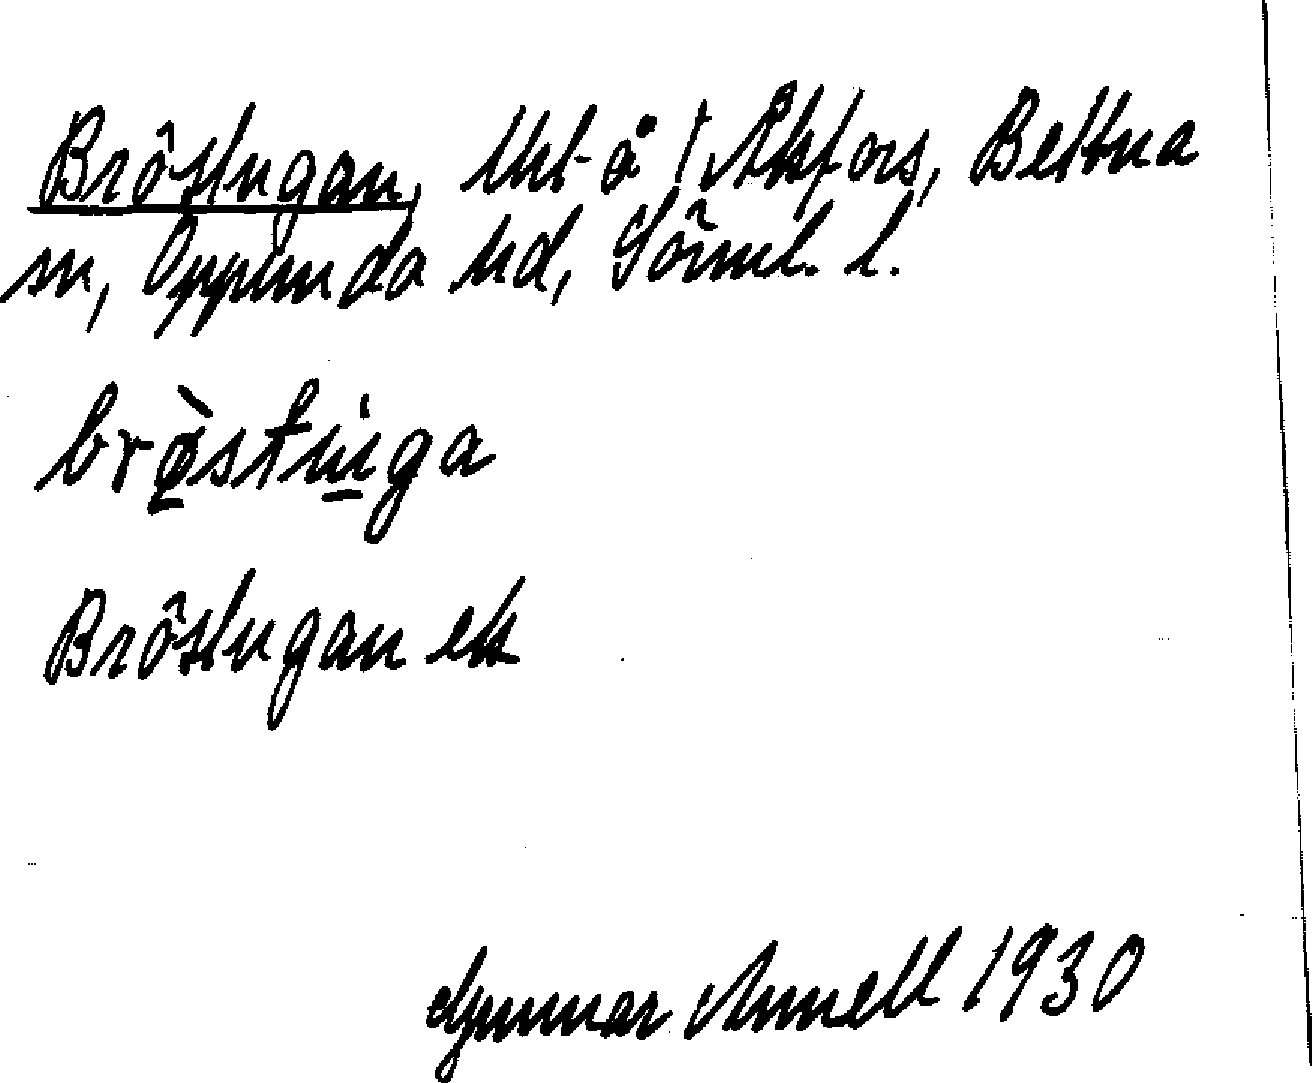 Bröstugan, lht å f Åkfors, Bettna
sn, Oppunda hd, Sörml. l.
brø̀stuga
Bröstugan ek
Gunnar Annell 1930